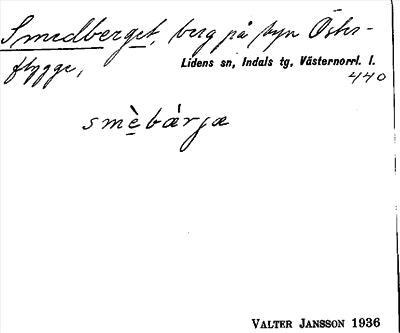 Smedberget, berg på byn Öster-
flygge,
Lidens sn, Indals tg, Västernorrl. l.
440
smè̱bárjæ
VALTER JANSSON 1936